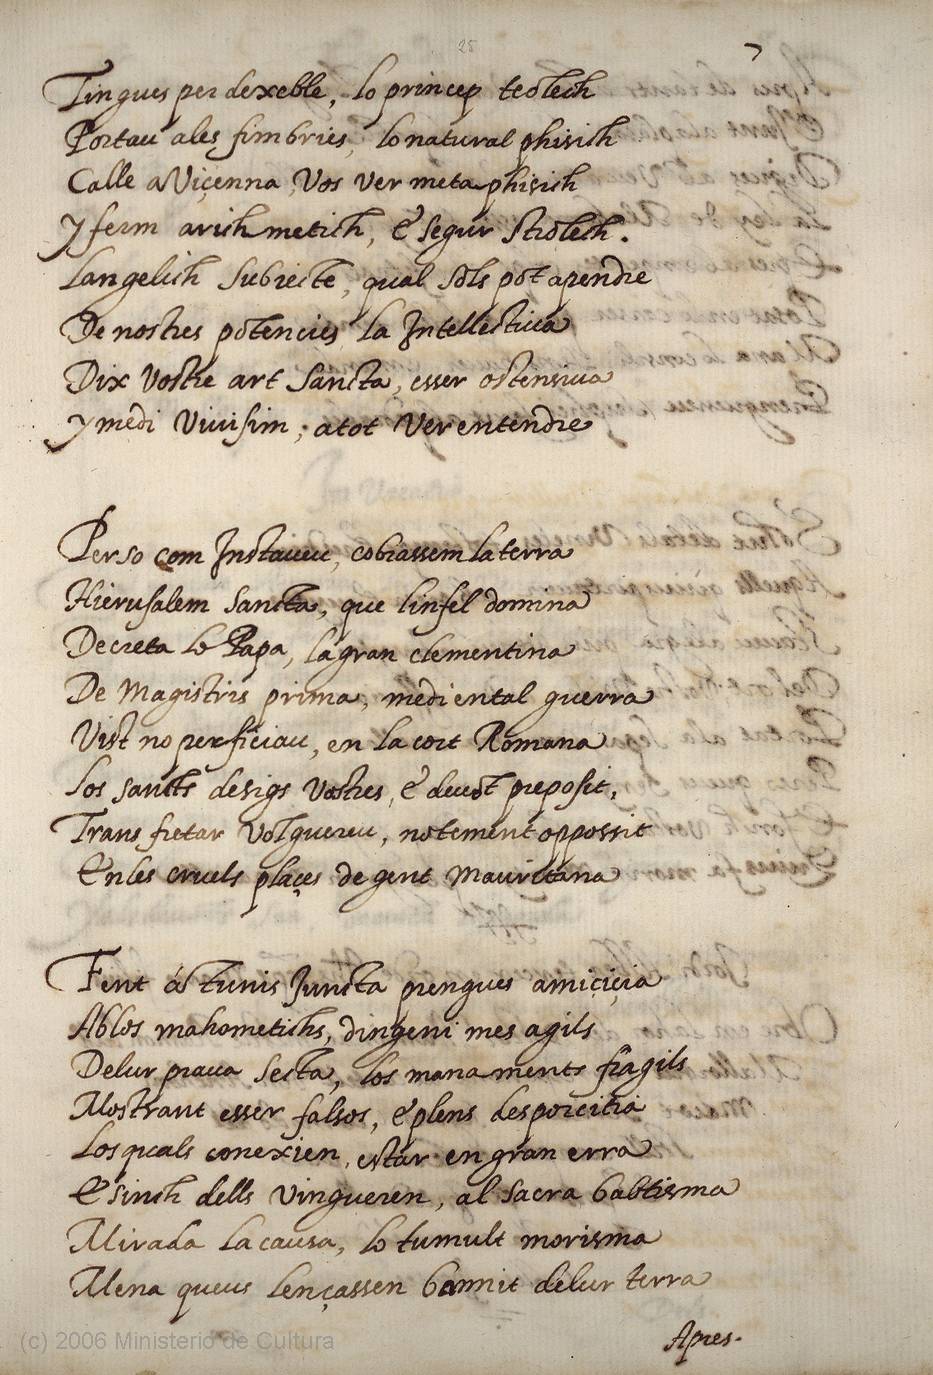 25
7
Tingues per dexeble, lo princep teolech
Portau ales fimbries, lo natural phisich
Calle aViçenna Vos ver metaphisich
y ferm arithmetich, & segur Strolech.
Langelich Subiecte, qual sols pot apendre
De nostres potencies la Intellectiua
Dix Vostre art Sancta, esser ostensiua
y medi Viuisim, atot Ver entendre
Perso com Instaueu, cobrassem la terra
Hierusalem Sancta, que linfel domina
Decreta lo Papa, la gran clementina
De Magistris prima, medi ental guerra
Vist no perficiau, en la cort Romana
Los sancts desigs Vostres, & deuot preposit,
Transfretar Volguereu, notement oppossit
Enles cruels plaçes de gent Mauritana
Fent á Tunis Juncta prengues amiciçia
Ablos mahometichs, dingeni mes agils
Delur praua Secta, los manaments fragils
Mostrant esser falsos, & plens desporcitia
Los quals conexien, estar en gran erra
& sinch dells Vingueren, al sacra babtisma
Mirada la causa, lo tumult morisma
Mena queus lençassen bannit delur terra
Apres.
(c) 2006 Ministerio de Cultura